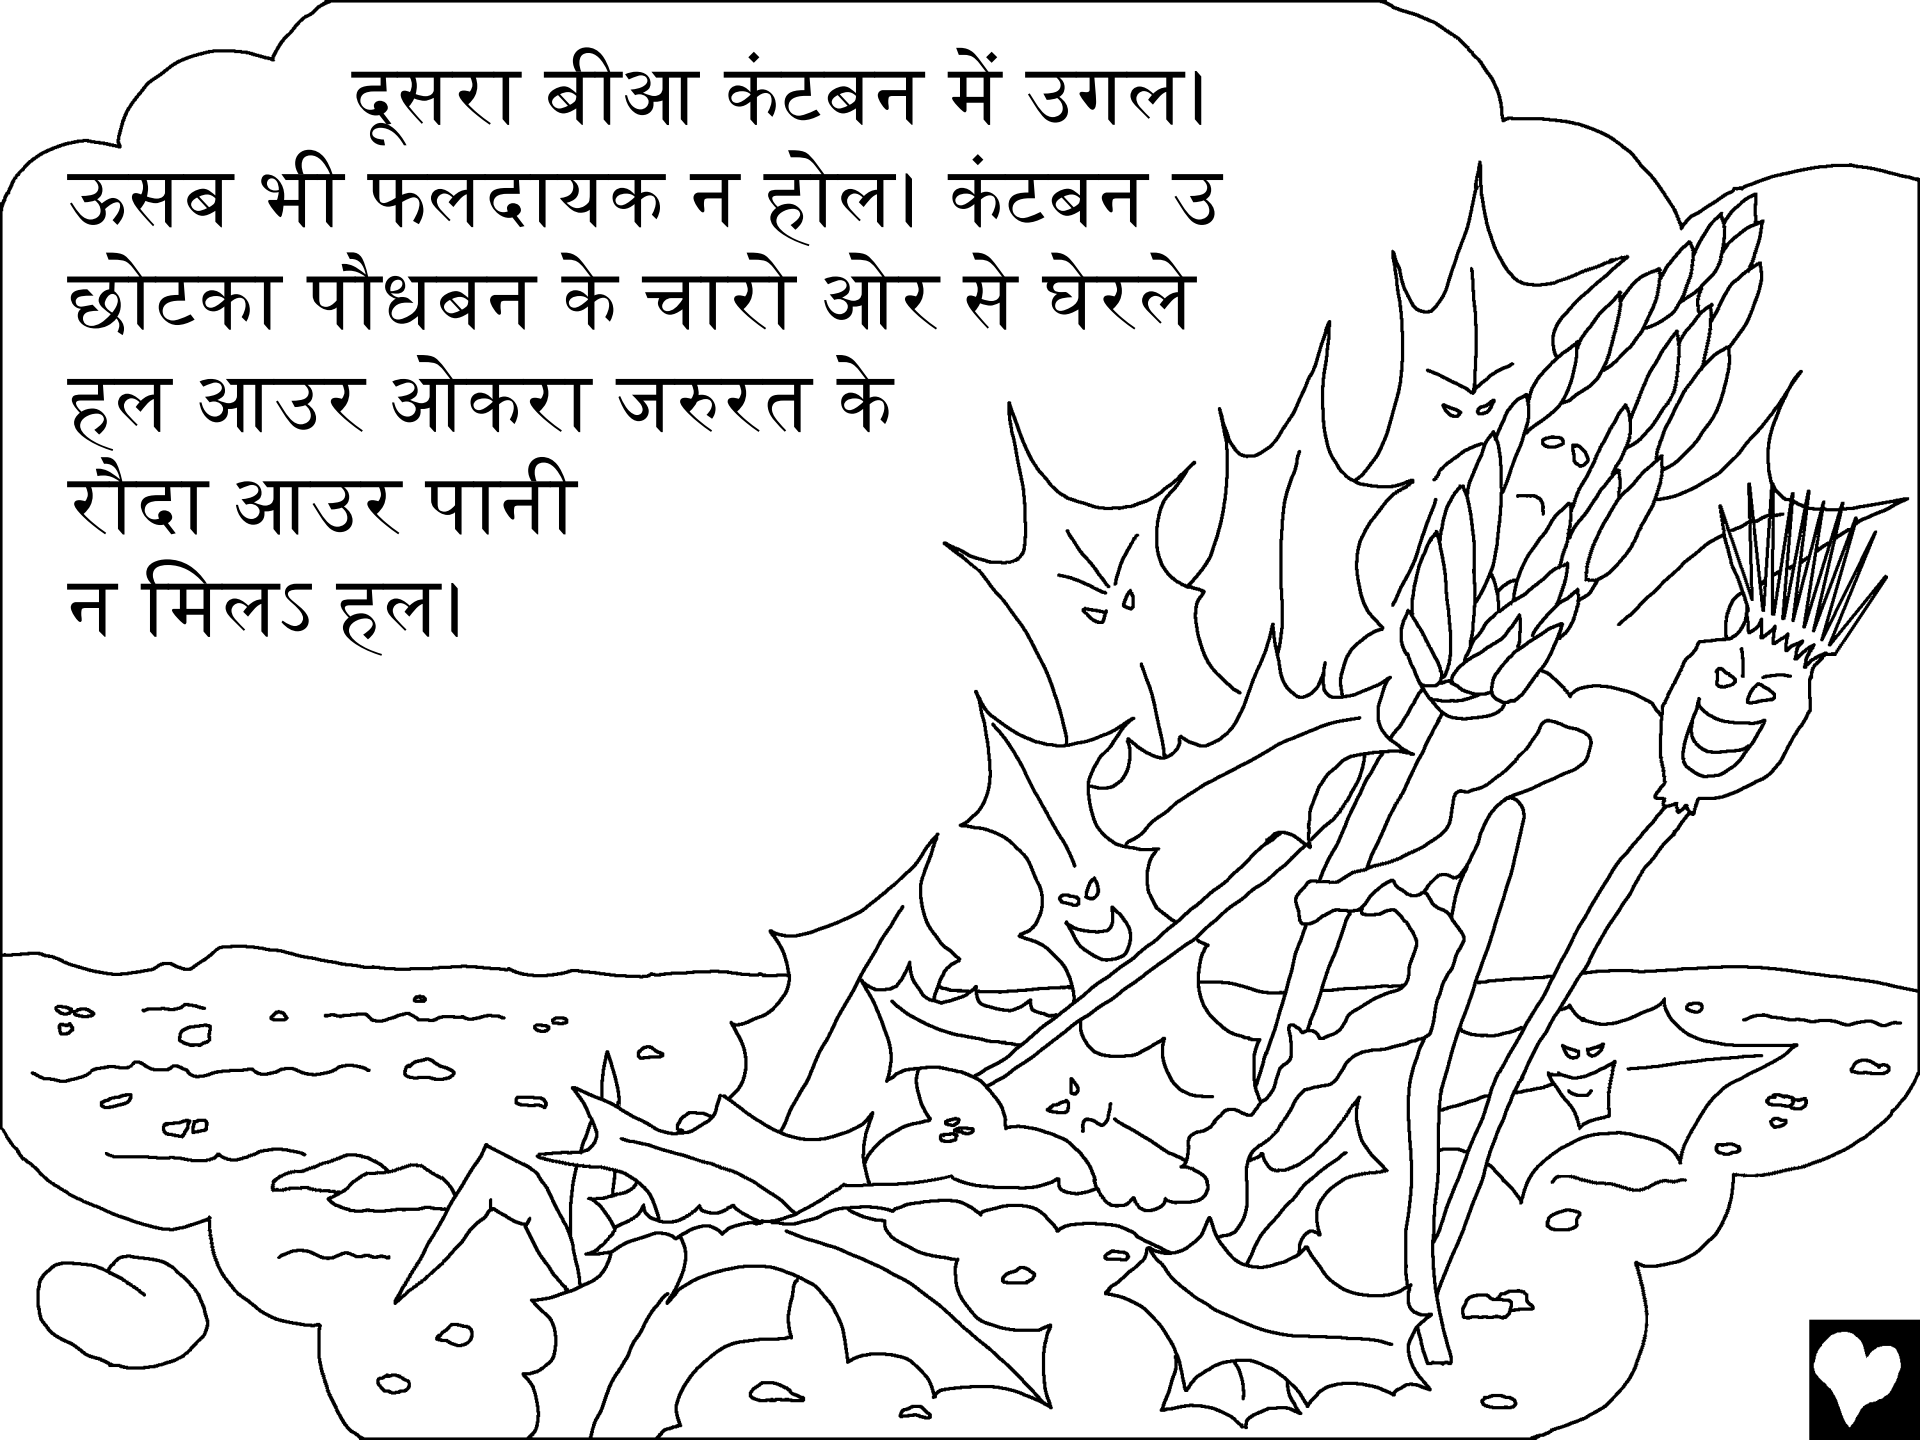 दूसरा बीआ कंटबन में उगल।
ऊसब भी फलदायक न होल। कंटबन उ
छोटका पौधबन के चारो ओर से घेरले
हल आउर ओकरा जरुरत के
रौदा आउर पानी
न मिलऽ हल।